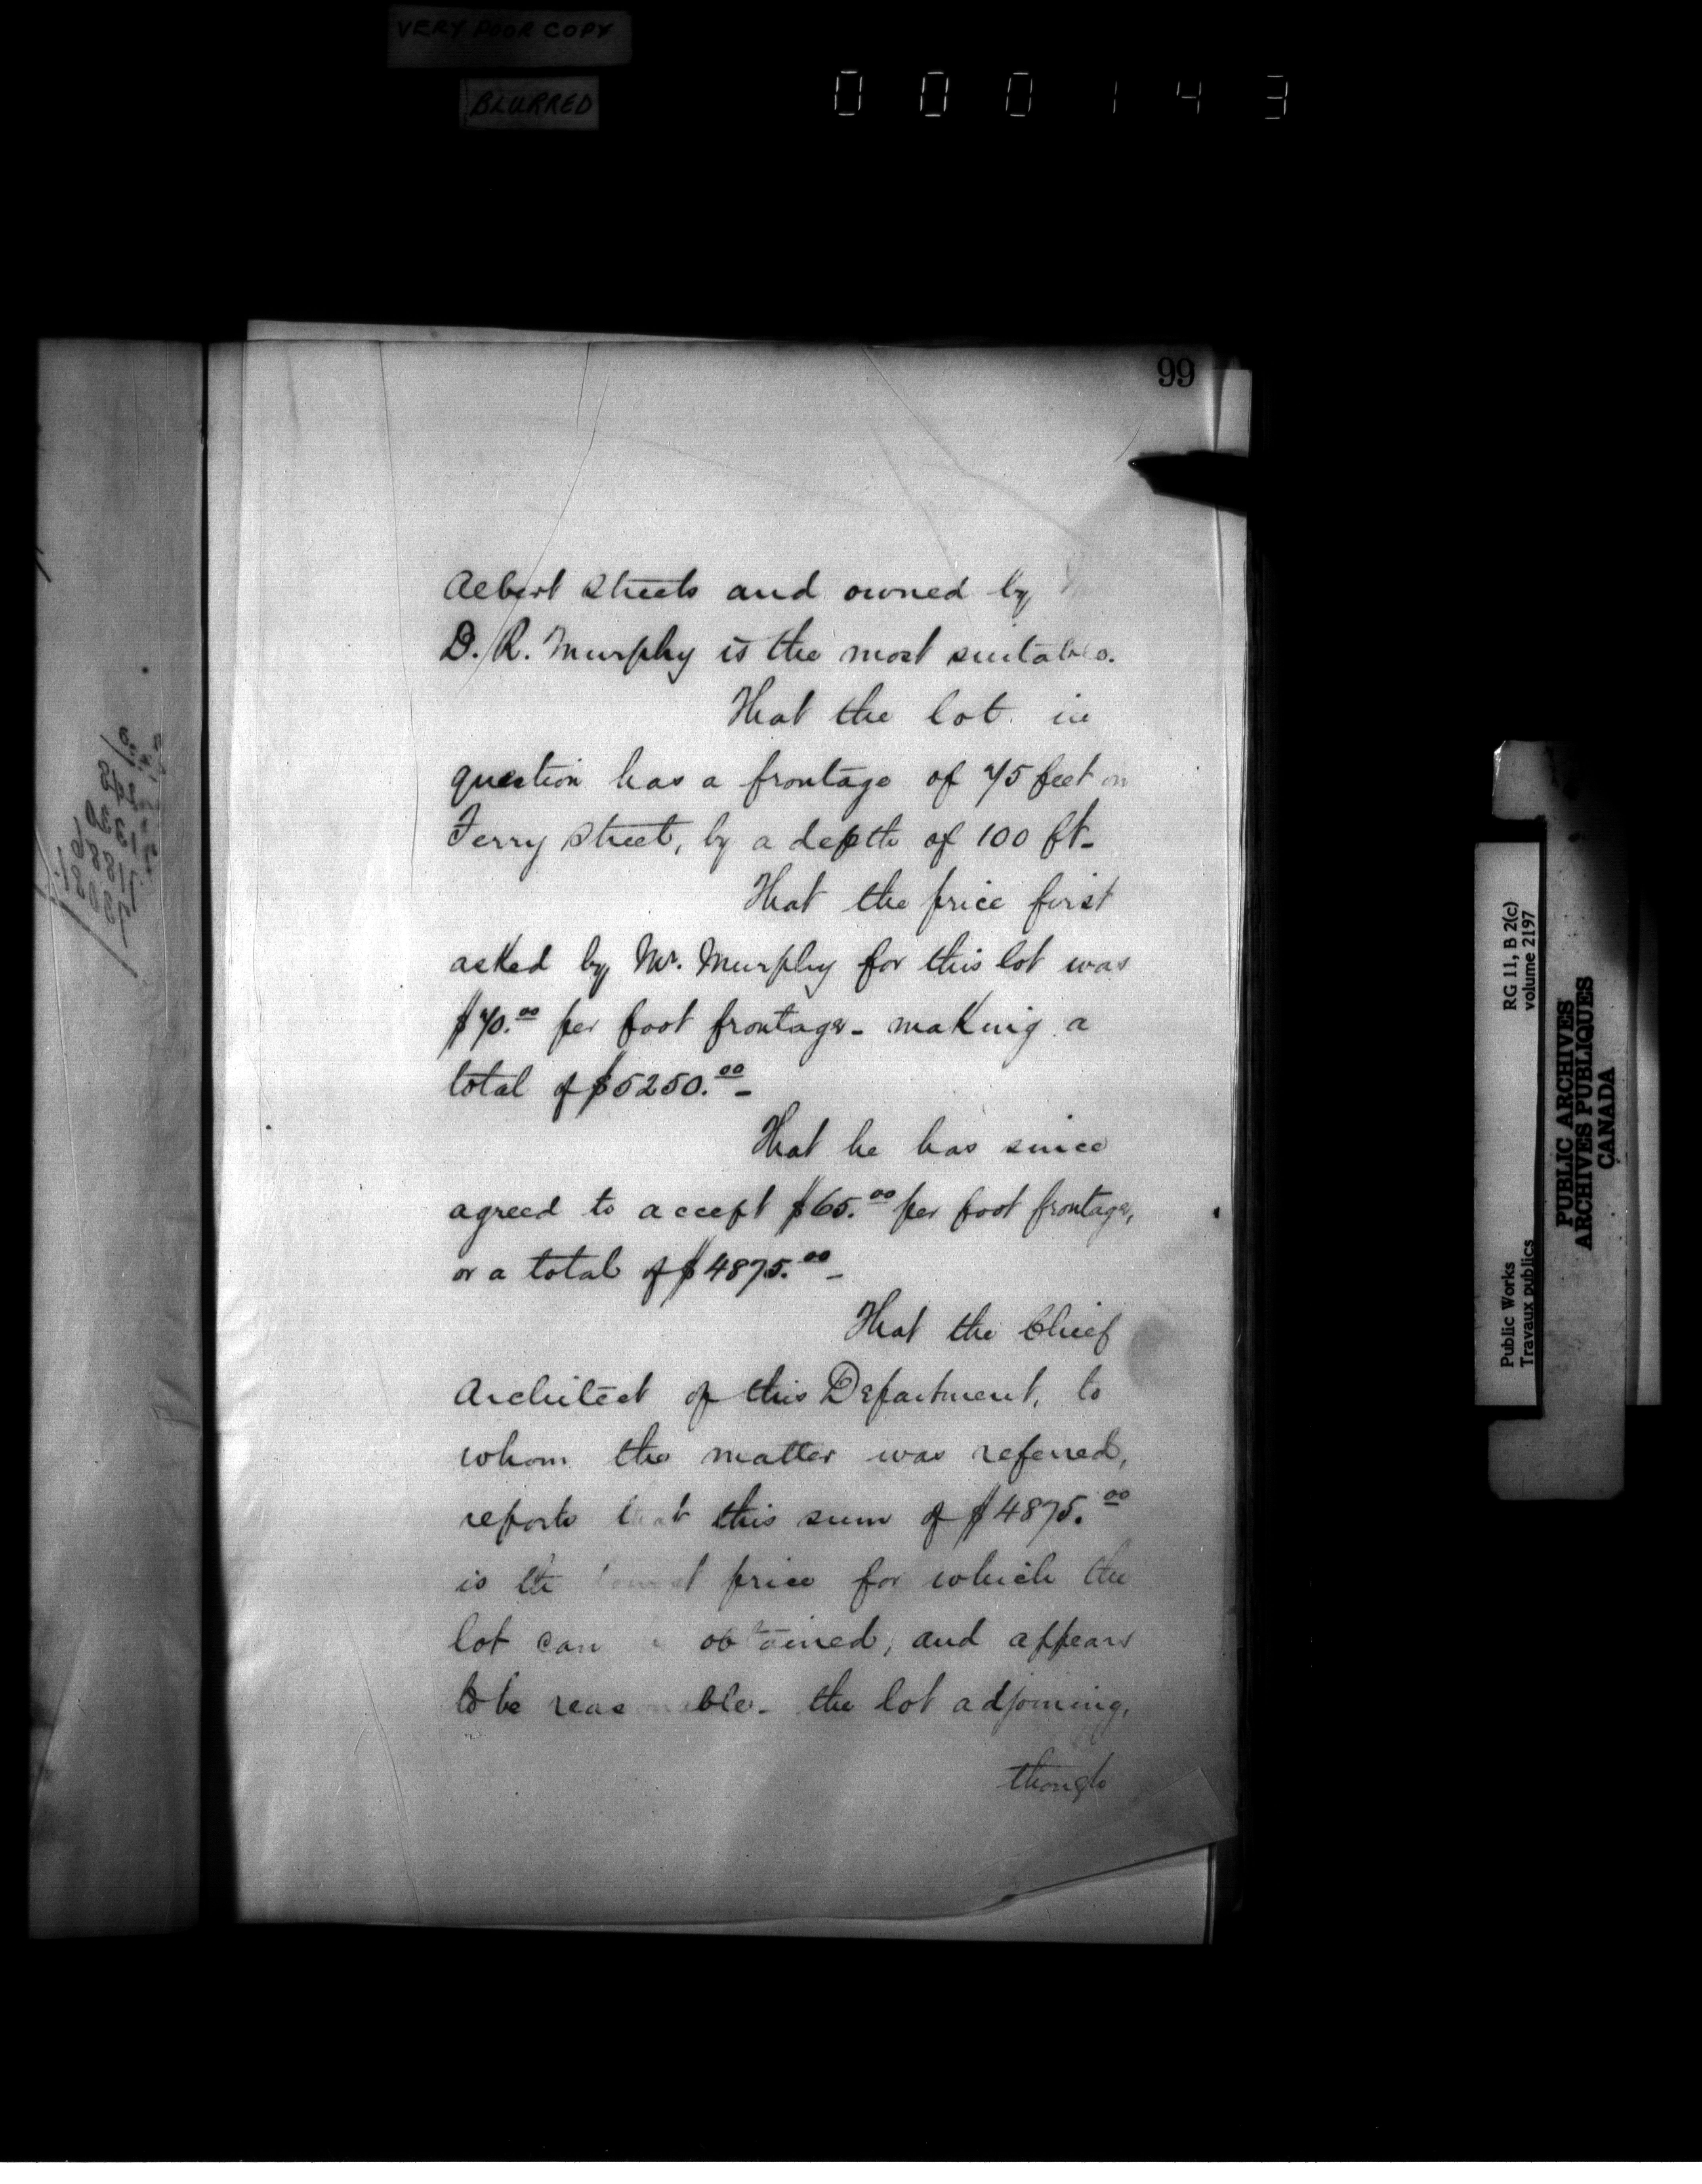 VERY POOR COPY
BLURRED
000143
99
Albert Streets and owned by
D. R. Murphy is the most suitable.
That the lot in
question has a frontage of 75 feet on
Terry Street, by a depth of 100 ft-
That the price first
asked by Mr. Murphy for this lot was
$70.00 per foot frontage - making a
total of $5250.00 -
That he has since
agreed to accept $65.00 per foot frontage,
or a total of $4875.00 -
That the Chief
Architect of this Department, to
whom the matter was referred,
reports that this sum of $4875.00
is the lowest price for which the
lot can obtained, and appears
to be reasonable - the lot adjoining,
though
RG 11, B 2(c)
volume 2197
Public Works
Travaux publics
PUBLIC ARCHIVES
ARCHIVES PUBLIQUES
CANADA